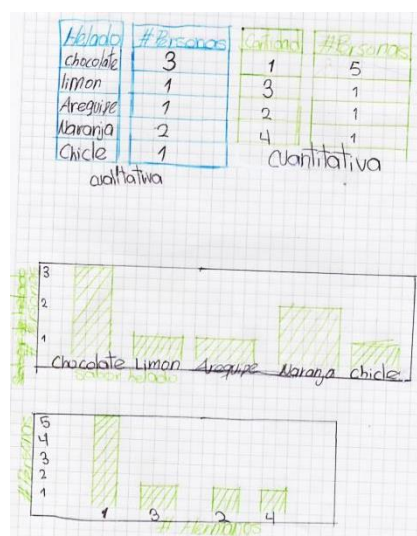 Helado #Personas
chocolate 3
limon 1
Arequipe 1
Naranja 2
Chicle 1
cualitativa
Cantidad #Personas
1 5
3 1
2 1
4 1
Cuantitativa
3
2
1
Chocolate Limon Arequipe Naranja chicle
sabor helado
5
4
3
2
1
# Personas
1 3 2 4
# Hermanos